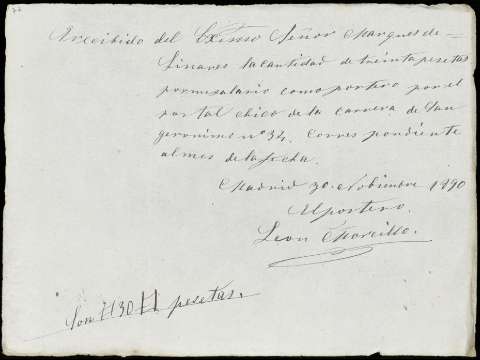 Arecibido del Exmo Señor Marques de=
Linares la cantidad de treinta pesetas
por mi salario como portero por el
portal chico de la carrera de San
geronimo nº 34. Corres pondiente
al mes de la fecha.
Madrid 30 Nobiembre 1890
El portero.
Leon Morcillo.
Son #30# pesetas.